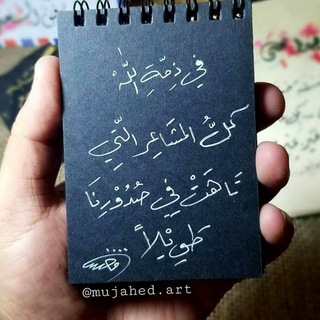 في ذِمَّةِ اللّٰه
كلُّ المشَاعِر الّتِي
تَاهَتْ في صُدُوْرِنَا
طَوِيْلاً
@mujahed.art